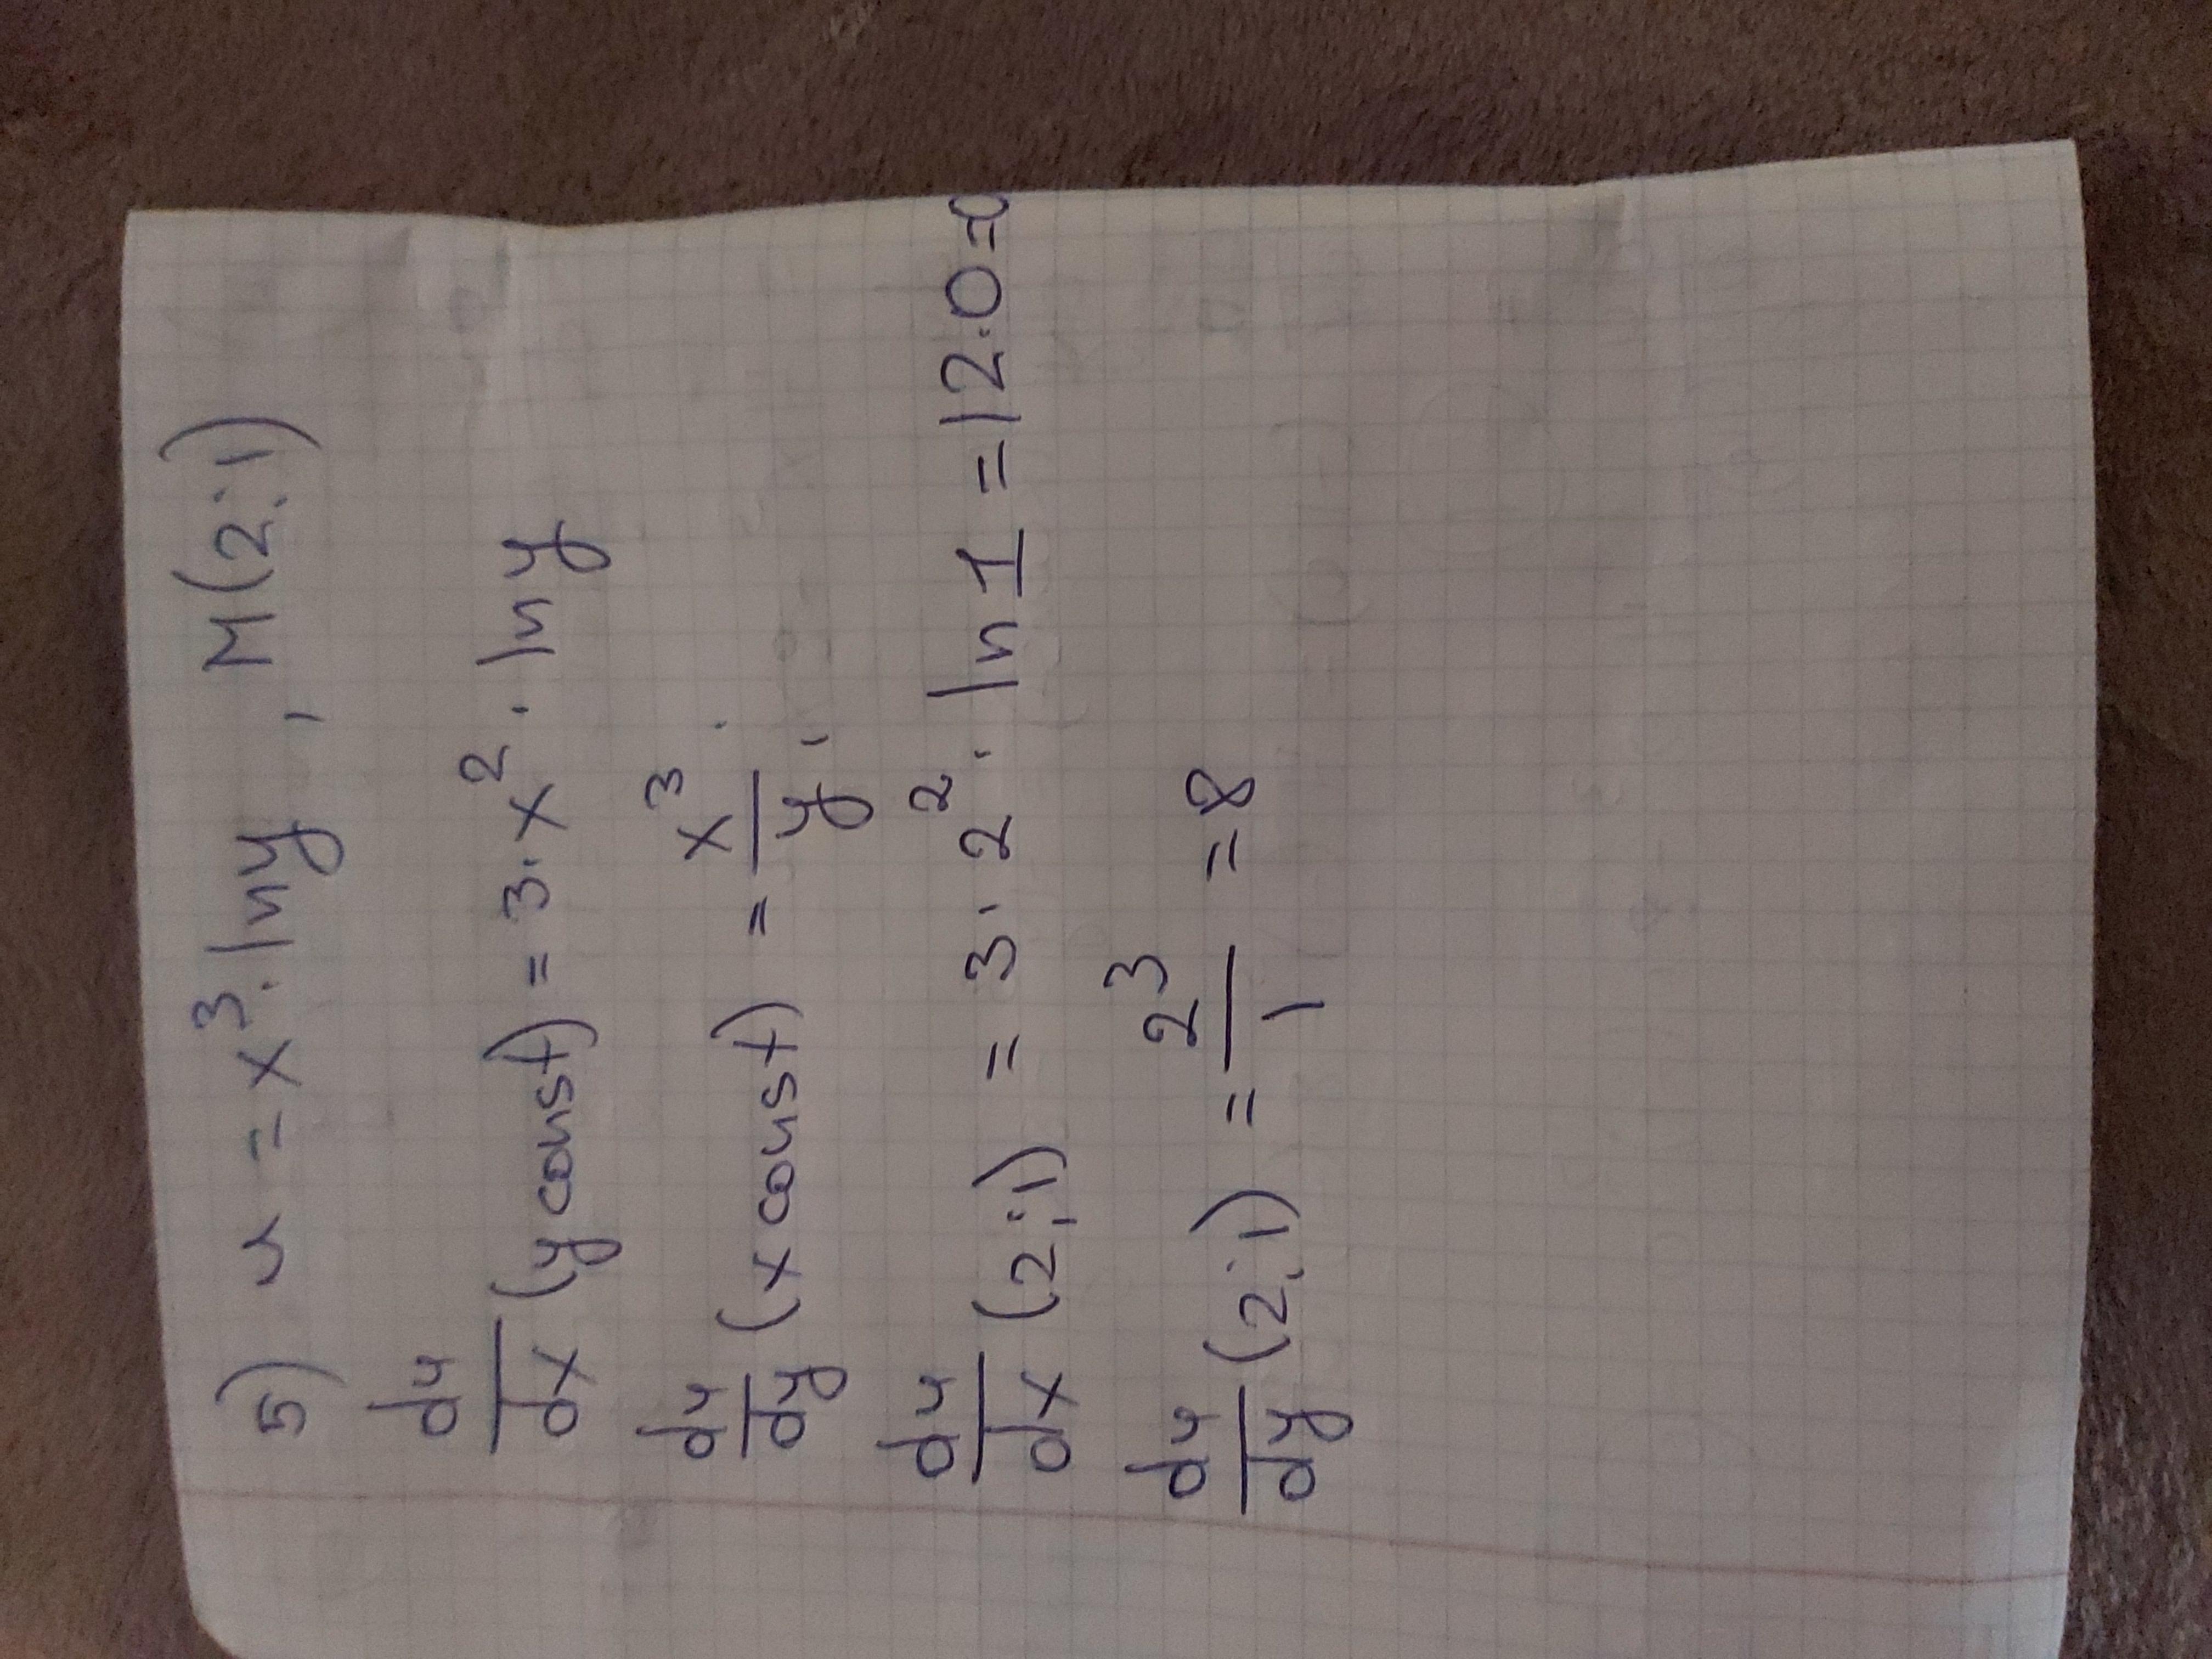 5) u = x³ · ln y , M(2;1)
du/dx (y const) = 3 · x² · ln y
du/dy (x const) = x³/y
du/dx (2;1) = 3 · 2² · ln 1 = 12 · 0 = 0
du/dy (2;1) = 2³/1 = 8